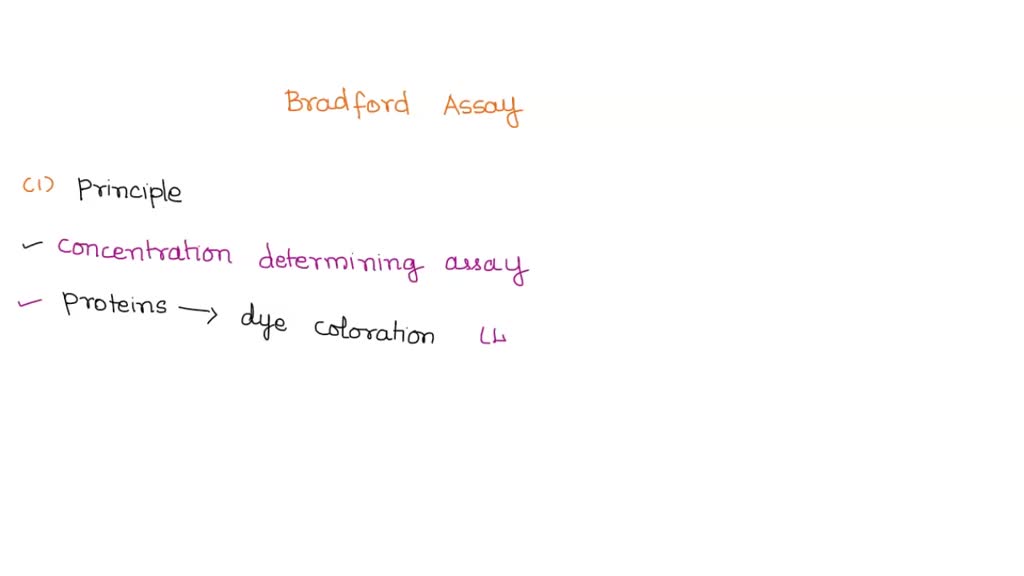 Bradford Assay
(1) Principle
✓ concentration determining assay
✓ Proteins → dye coloration